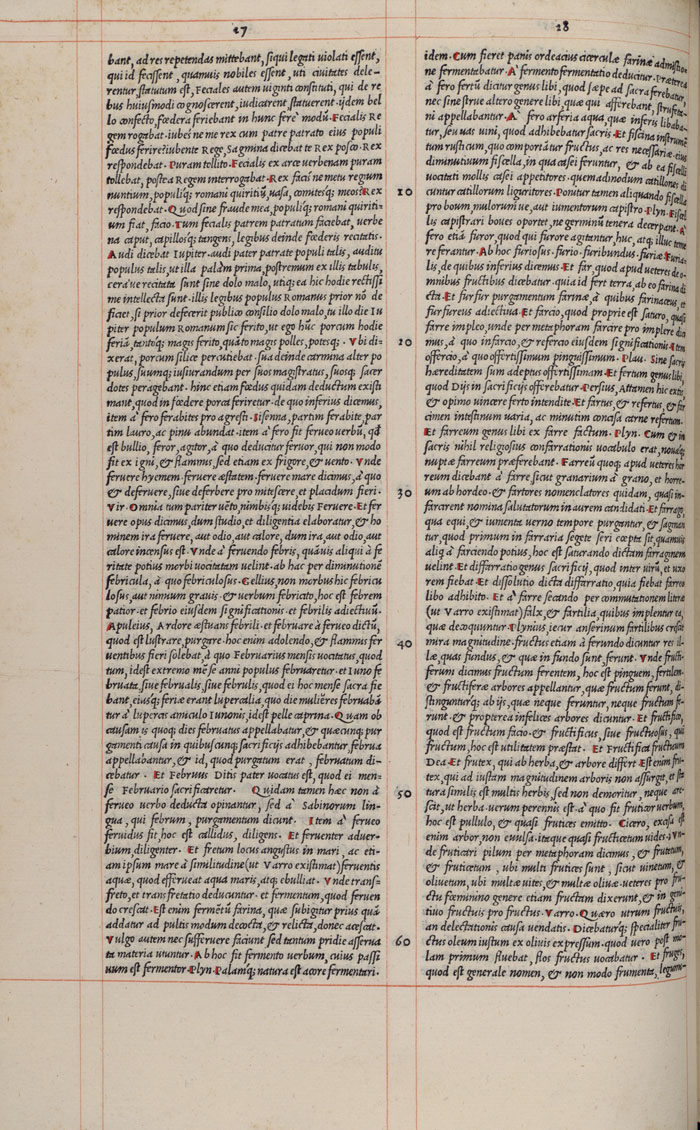 27
bant, ad res repetendas mittebant, siqui legati violati essent,
qui id fecissent, quamuis nobiles essent, uti ciuitates dele-
rentur, statutum est, Feciales autem uiginti constituti, qui de re
bus huiusmodi cognoscerent, iudicarent, statuerent. ijdem bel
lo confecto, fœdera feriebant in hunc ferè modū. Fecialis Re
gem rogabat. iubes'ne me rex cum patre patrato eius populi
fœdus ferire? iubente Rege, Sagmina dicebat te Rex posco. Rex
respondebat. Puram tollito. Fecialis ex arce uerbenam puram
tollebat, postea Regem interrogabat. Rex facis'ne metu regium
nuntium, populiq; romani quiritiū, uasa, comitesq; meos? Rex
respondebat. Quod sine fraude mea, populiq; romani quiriti=
um fiat, facio. Tum fecialis patrem patratum faciebat, verbe
na caput, capillosq; tangens, legibus deinde fœderis recitatis.
Audi dicebat Iupiter. audi pater patrate populi talis, auditu
populus talis, ut illa palàm prima, postremum ex illis tabulis,
cera'ue recitata sunt sine dolo malo, utiq; ea hic hodie rectissi
me intellecta sunt. illis legibus populus Romanus prior nō de
ficaet, si prior defecerit publico consilio dolo malo, tu illo die Iu
piter populum Romanum sic ferito, ut ego hūc porcum hodie
feriā, tantoq; magis ferito, quāto magis polles, potesq;. Vbi di=
xerat, porcum silice percutiebat. sua deinde carmina alter po
pulus, suumq; iusiurandum per suos magistratus, suosq; sacer
dotes peragebant. hinc etiam fœdus quidam deductum existi
mant, quod in fœdere porca feriretur. de quo inferius dicemus,
item à fero ferabites pro agresti. Sisenna, partim ferabite par
tim lauro, ac pinu abundat. item à fero fit ferueo verbū, qđ
est bullio, feror, agitor, à quo deducitur feruor, qui non modo
fit ex igni, & flammis, sed etiam ex frigore, & uento. Vnde
feruere hyemem. feruere æstatem. feruere mare dicimus, à quo
& deferuere, siue deferbere pro mitescere, et placidum fieri.
Vir. Omnia tum pariter uēto, nimbisq; uidebis Feruere. Et fer
uere opus dicimus, dum studio, et diligentia elaboratur, & ho
minem ira feruere, aut odio, aut calore, dum ira, aut odio, aut
calore incensus est. Vnde à feruendo febris, quāuis aliqui à fe
ritate potius morbi uocitatam uelint. ab hac per diminutionē
febricula, à quo febriculosus. Gellius, non morbus hic febricu
losus, aut nimium grauis. & uerbum febricito, hoc est febrem
patior. et febrio eiusdem significationis. et febrilis adiectiuū.
Apuleius, Ardore æstuans febrili. et februare à ferueo dictū,
quod est lustrare, purgare. hoc enim adolendo, & flammis fer
uentibus fieri solebat, à quo Februarius mensis uocitatus, quod
tum, idest extremo mēse anni populus februaretur. et Iuno fe
bruata, siue februalis, siue februlis, quod ei hoc mense sacra fie
bant, eiusq; feriæ erant lupercalia, quo die mulieres februabā
tur à lupercis amiculo Iunonis, idest pelle caprina. Quam ob
causam is quoq; dies februatus appellabatur, & quæcunq; pur
gamenti causa in quibuscunq; sacrificijs adhibebantur februa
appellabantur, & id, quod purgatum erat, februatum di-
cebatur. Et Februus Ditis pater uocatus est, quod ei men=
se Februario sacrificaretur. Quidam tamen hæc non à
ferueo uerbo deducta opinantur, sed à Sabinorum lin=
gua, qui februm, purgamentum dicunt. Item à ferueo
feruidus fit, hoc est callidus, diligens. Et feruenter aduer=
bium, diligenter. Et fretum locus angustus in mari, ac eti=
am ipsum mare à similitudine (ut Varro existimat) feruentis
aquæ, quod efferueat aqua maris, atq; ebulliat. Vnde trans=
freto, et transfretatio deducuntur. et fermentum, quod feruen
do crescat. Est enim fermētū farina, quæ subigitur prius quā
addatur ad pultis modum decocta, & relicta, donec acescat.
Vulgo autem nec sufferuere faciunt sed tantum pridie asserua
ta materia utuntur. Ab hoc fit fermento uerbum, cuius passi
uum est fermentor. Plyn. Palamq; natura est acore fermentari.
28
idem. Cum fieret panis ordeacius cicerculæ farinæ admistio=
ne fermentabatur. A fermento fermentatio deducitur. Præterea
à fero fertū dicitur genus libi, quod sæpe ad sacra ferebatur,
nec sine strue altero genere libi, quæ qui afferebant, struferta=
ni appellabantur. A fero arferia aqua, quæ inferis libaba=
tur, seu uas uini, quod adhibebatur sacris. Et fiscina instrumē
tum rusticum, quo comportatur fructus, ac res necessariæ, eius
diminutiuum fiscella, in qua casei feruntur, & ab ea fiscelli
uocitati mollis casei appetitores. quemadmodum catillones di
10 cuntur catillorum liguritores. Ponitur tamen aliquando fiscella
pro boum, mulorum'ue, aut iumentorum capistro. Plyn. Fiscel
lis capistrari boues oportet, ne germinū tenera decerpant. A
fero etiā furor, quod qui furore agitantur, huc, atq; illuc temere
referantur. Ab hoc furiosus. furio. furibundus. furiæ. Furia=
lis, de quibus inferius dicemus. Et far, quod apud ueteres de o-
mnibus fructibus dicebatur. quia id fert terra, ab eo farina di
cta. Et furfur purgamentum farinæ, à quibus farinaceus, et
furfureus adiectiua. Et farcio, quod proprie est saturo, quasi
farre impleo, unde per metaphoram farcire pro implere dici
20 mus, à quo infarcio, & refercio eiusdem significationis. Item
offercio, à quo offertissimum pinguissimum. Plau. Sine sacris
hæreditatem sum adeptus offertissimam. Et fertum genus libi,
quod Dijs in sacrificijs offerebatur. Persius, Attamen hic extis,
& opimo uincere ferto intendite. Et fartus, & refertus, & far
cimen intestinum uaria, ac minutim concisa carne refertum.
Et farreum genus libi ex farre factum. Plyn. Cum & in
sacris nihil religiosius confarrationis uocabulo erat, nouæq;
nuptæ farreum præferebant. Farreū quoq; apud ueteres hor
reum dicebant à farre, sicut granarium à grano, et horre=
30 um ab hordeo. & fartores nomenclatores quidam, quasi in=
farcirent nomina salutatorum in aurem candidati. Et farrago,
qua equi, & iumenta uerno tempore purgantur, & saginan
tur, quod primum in farraria segete seri cœpta sit, quamuis
aliq à farciendo potius, hoc est saturando dictam farraginem
uelint. Et diffarratio genus sacrificij, quod inter uirū, et uxo
rem fiebat. Et dissolutio dicta diffarratio, quia fiebat farreo
libo adhibito. Et à farre secando per commutationem literæ
(ut Varro existimat) falx, & fartilia, quibus implentur ea,
quæ decoquuntur. Plynius, iecur anserinum fartilibus crescit
40 mira magnitudine. fructus etiam à ferundo dicuntur res il=
læ, quas fundus, & quæ in fundo sunt, ferunt. Vnde fructi=
ferum dicimus fructum ferentem, hoc est pinguem, fertilem.
& fructiferæ arbores appellantur, quæ fructum ferunt, di=
stinguunturq; ab ijs, quæ neque feruntur, neque fructum fe=
runt. & propterea infelices arbores dicuntur. Et fructifico,
quod est fructum facio. & fructificus, siue fructuosus, qui
fructum, hoc est utilitatem præstat. Et Fructifica fructuum
Dea. Et frutex, qui ab herba, & arbore differt. Est enim fru=
tex, qui ad iustam magnitudinem arboris non assurgit, et sta
50 tura similis est multis herbis, sed non demoritur, neque are=
scit, ut herba. uerum perennis est. à quo fit fruticor uerbum,
hoc est pullulo, & quasi frutices emitto. Cicero, excisa est
enim arbor, non euulsa. itaque quasi fructicetum uides. & un=
de fruticari pilum per metaphoram dicimus, & frutetum,
& fruticetum, ubi multi frutices sunt, sicut uinetum, &
oliuetum, ubi multæ uites, & multæ oliuæ. ueteres pro fru=
ctu fœminino genere etiam fructam dixerunt, & in geni=
tiuo fructuis pro fructus. Varro. Quæro utrum fructuis,
an delectationis causa uendatis. Dicebaturq; specialiter fru=
60 ctus oleum iustum ex oliuis expressum. quod uero post mo=
lam primum fluebat, flos fructus uocabatur. Et fruges,
quod est generale nomen, & non modo frumenta, legum=